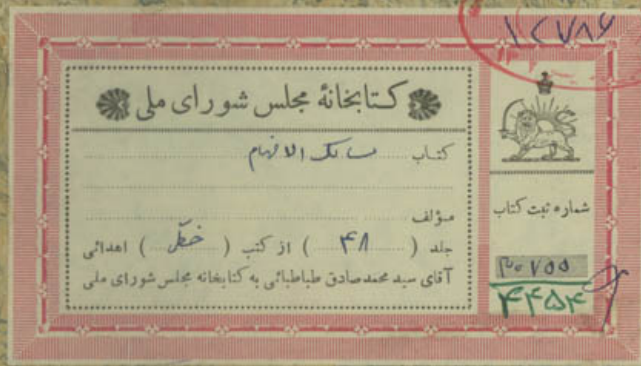 ۱۲۷۸۶
کتابخانهٔ مجلس شورای ملی
کتاب مسالک الافهام
مؤلف
جلد ( ۴۸ ) از کتب ( خطی ) اهدائی
آقای سید محمدصادق طباطبائی به کتابخانه مجلس شورای ملی
شماره ثبت کتاب
۲۰۷۵۵
۴۴۵۴